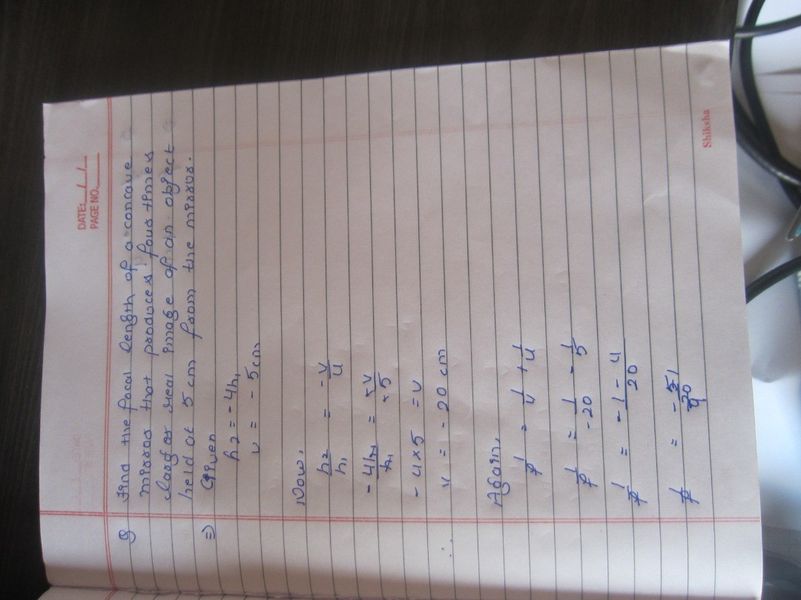 DATE: / /
PAGE NO.
Q Find the focal length of a concave
mirror that produces four times
larger real image of an object
held at 5 cm from the mirror.
⇒ Given
h2 = -4h1
u = -5cm
Now,
h2/h1 = -v/u
-4h1/h1 = +v/+5
-4×5 = v
∴ v = -20 cm
Again,
1/f = 1/v + 1/u
1/f = 1/-20 - 1/5
1/f = -1-4/20
1/f = -51/204
Shiksha